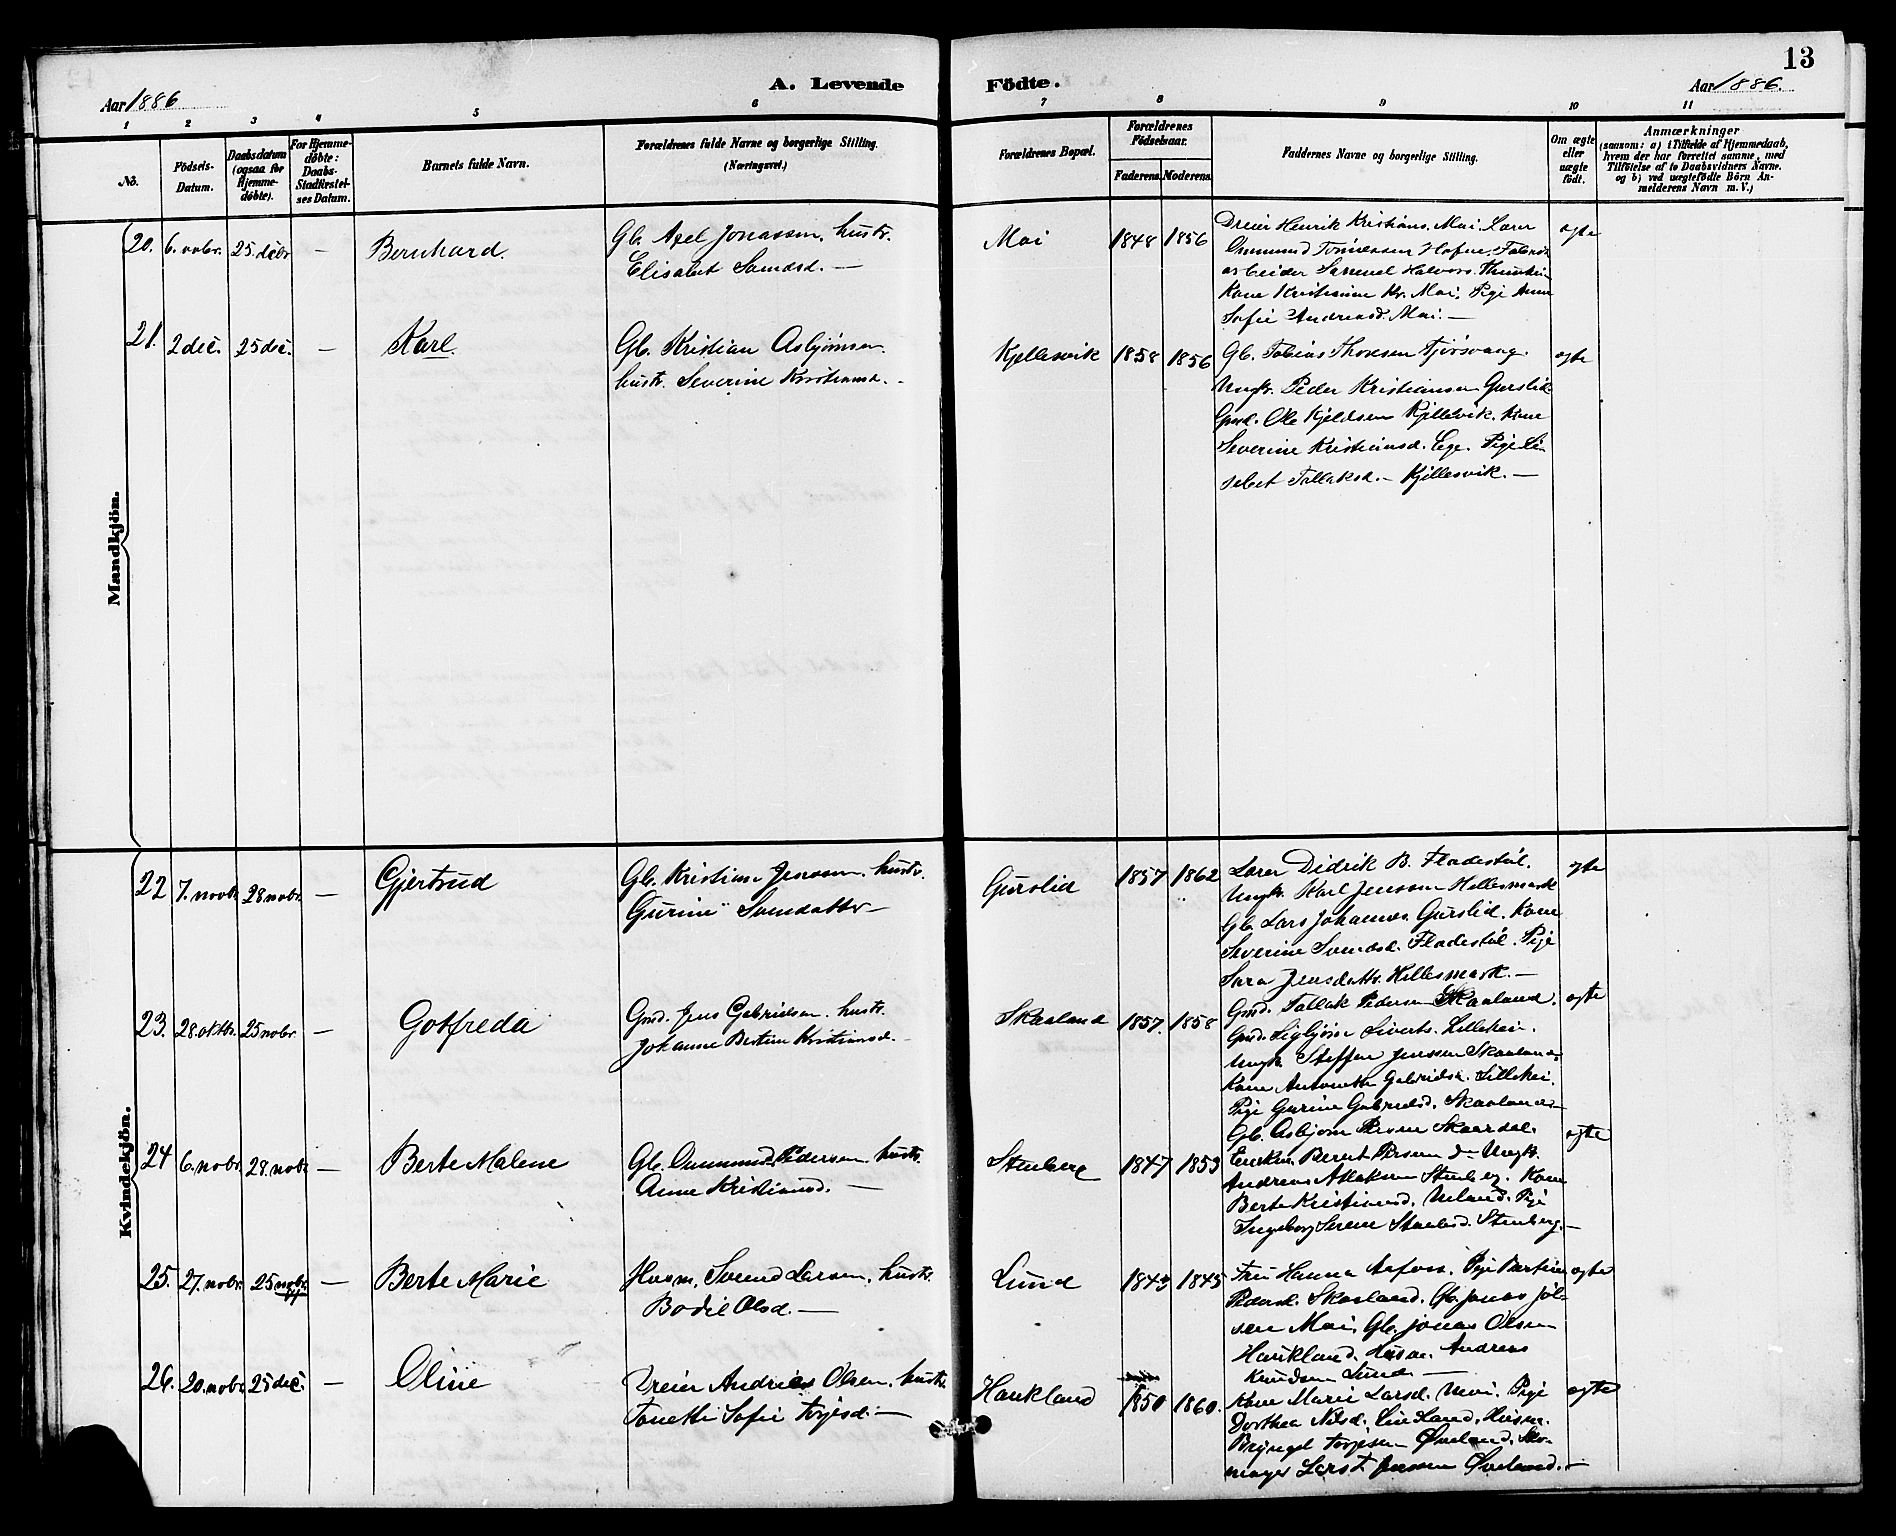 13
A. Levende Födte.
Aar 1886
Aar 1886.
1 2 3 4 5 6 7 8 9 10 11
No.
Födsels-Datum.
Daabsdatum (ogsaa for Hjemmedøbte).
For Hjemmedøbte: Daabs-Stadfæstelses Datum.
Barnets fulde Navn.
Forældrenes fulde Navne og borgerlige Stilling. (Næringsvei.)
Forældrenes Bopæl.
Forældrenes Födselsaar.
Faderens. Moderens.
Faddernes Navne og borgerlige Stilling.
Om ægte eller uægte født.
Anmærkninger
(saasom: a) i Tilfælde af Hjemmedaab, hvem der har forrettet samme, med Tilföielse af to Daabsvidners Navne. og b) ved uægtefödte Börn Anmelderens Navn m. V.)
Mandkjön.
20. 6. nobr. 25. decbr — Bernhard.
Gb. Axel Jonassen, hustr.
Elisabet Samdsd. —
Moi 1848 1856
Dreier Henrik Kristians. Moi. Lærer
Omund Tønnessen Hofne. Fabrik
arbeider Samuel Halvors.
Kone Kristianne Kr. Moi. Pige Anne
Sofie Andreasd. Moi. —
ægte
21. 2 dec. 25 dec. — Karl.
Gb. Kristian Asbjörnsen
hustr. Severine Kristiansd. —
Kjellesvik 1858 1856
Gb. Tobias Thorsen Tjørsvaag.
Ungk. Peder Kristiansen Gurslid
Gmd. Ole Kjeldsen Kjellesvik. Kone
Severine Kristiansd. Ege. Pige Li-
sebet Tallaksd. — Kjellesvik. —
ægte
Kvindekjön.
22 7. novbr. 28 nobr. — Gjertrud
Gb. Kristian Jensen, hustr.
Gurine Svendsdattr —
Gurslid 1857 1862
Lærer Didrik B. Fladestøl.
Ungk. Karl Jensen Hellesmark
Gb. Lars Johannes. Gurslid. Kone
Severine Svendsd. Fladestøl. Pige
Sara Jensdattr. Hellesmark. —
ægte
23. 28. oktbr. 25 nobr. — Gotfreda
Gmd. Jens Gabrielsen, hustr.
Johanne Bertine Kristiansd. —
Skaaland 1857. 1858
Gmd. Tallak Pedersen Skaaland.
Gmd. Sigbjörn Siverts. Lillehei.
Ungk. Steffen Jensen Skaaland
Kone Antonette Gabrielsd. Lillehei.
Pige Gurine Gabrielsd. Skaaland —
ægte
24 6. nobr. 28. nobr — Berte Malene
Gb. Ommund Pedersen, hustr.
Anne Kristiansd. —
Stenberg 1847 1853
Gb. Asbjørn Skaardal.
Enkem. Berent Persen do Ungk.
Andreas Stenberg. Kone
Berte Kristiansd. Ueland. Pige
Ingeborg Serene Stenberg. —
ægte
25. 27. nobr. 25 nobr. — Berte Marie
Husm. Svend Larsen, hustr.
Bodil Olsd. —
Lund 1843 1845
Fru Hanna Pige Bertine
Pedersd. Skaaland. Gb. Jonas Jöl-
sen Moi, Gb. Jonas Olsen
Haukland. Husm. Andreas
Knudsen Lund. —
ægte
26. 20. nobr 25 dec. — Oline
Dreier Andreas Olsen, hustr.
Tonette Sofie Torjesd. —
Haukland 1850 1860.
Kone Marie Larsd. Moi. Pige
Dorthea Nilsd. Husm.
Bryngel Torjesen Øveland. Sko-
mager Lars T. Jenssen Øveland. —
ægte